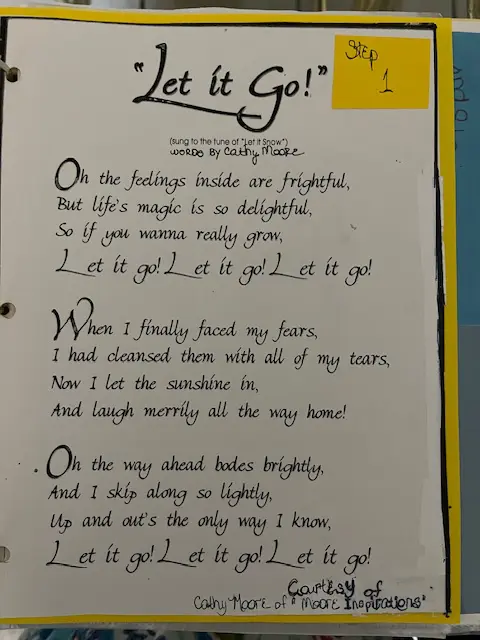 "Let it Go!"
Step
1
(sung to the tune of "Let it Snow")
WORDS BY Cathy Moore
Oh the feelings inside are frightful,
But life's magic is so delightful,
So if you wanna really grow,
Let it go! Let it go! Let it go!
When I finally faced my fears,
I had cleansed them with all of my tears,
Now I let the sunshine in,
And laugh merrily all the way home!
Oh the way ahead bodes brightly,
And I skip along so lightly,
Up and out's the only way I know,
Let it go! Let it go! Let it go!
Courtesy of
Cathy Moore of "Moore Inspirations"